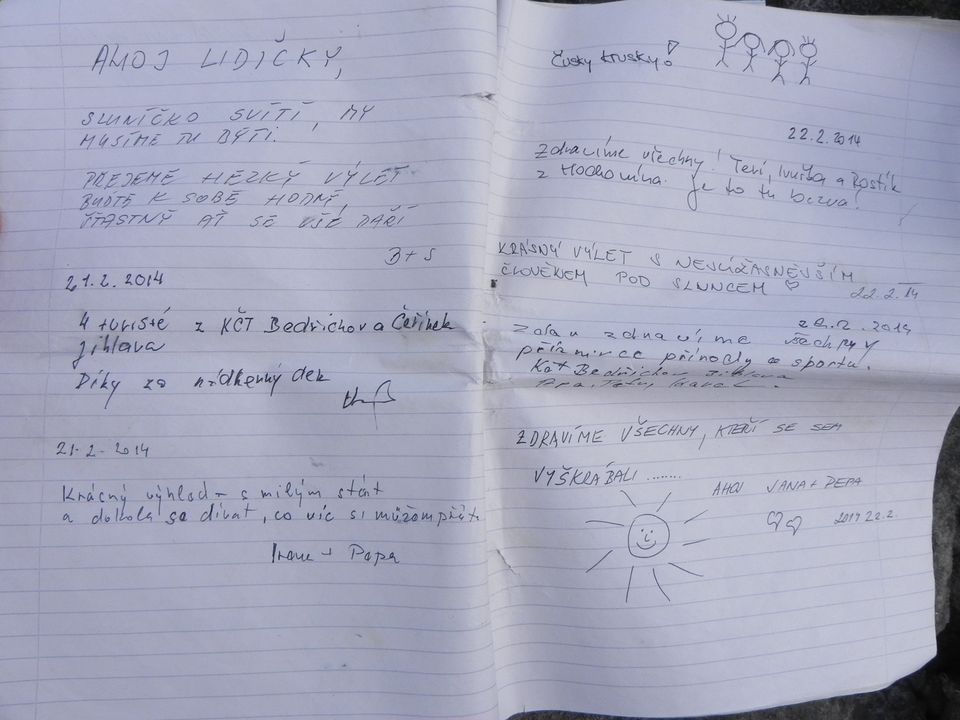 AHOJ LIDIČKY,
SLUNÍČKO SVÍTÍ, MY
MUSÍME TU BÝTI.
PŘEJEME HEZKÝ VÝLET
BUĎTE K SOBĚ HODNÍ,
ŠŤASTNÝ AŤ SE VŠE DAŘÍ
B+S
21.2.2014
4 turisté z KČT Bedřichov a Čeřínek
Jihlava
Díky za nádherný den
21.2.2014
Krásný výhled - s milým stát
a dokola se dívat, co víc si můžem přát.
+ Pepa
Čusky trusky!
22.2.2014
Zdravíme všechny! Teri, Ivuška a Rostík
z Hodonína. Je to tu bezva!
KRÁSNÝ VÝLET S NEJÚŽASNĚJŠÍM
ČLOVĚKEM POD SLUNCEM ♡ 22.2.14
22.2.2014
zdravíme všechny
příznivce přírody a sportu.
Bedřichov Jihlava
ZDRAVÍME VŠECHNY, KTEŘÍ SE SEM
VYŠKRÁBALI........
AHOJ JANA + PEPA
2014 22.2.